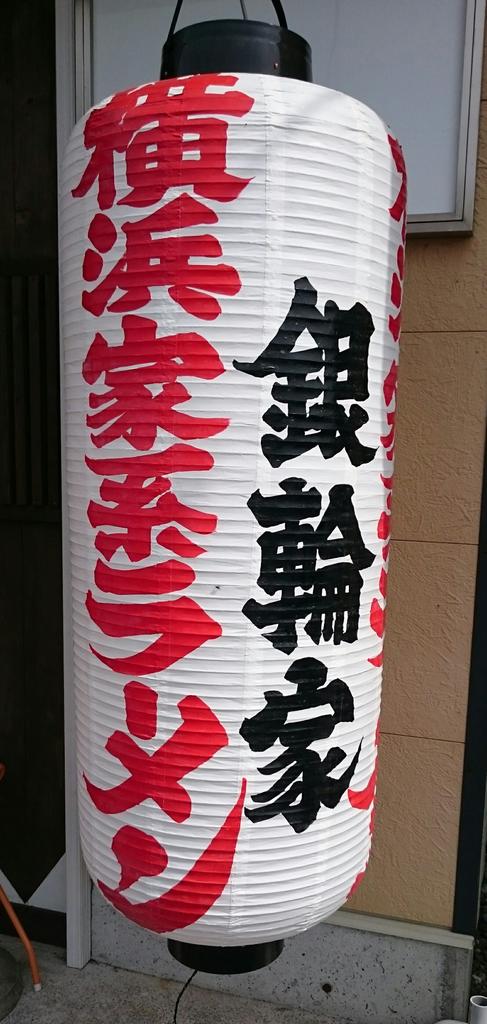 銀輪家
横浜家系ラーメン